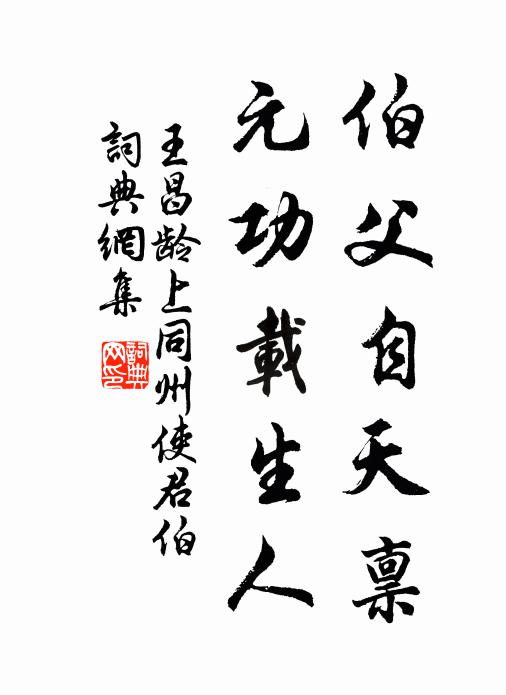 伯父自天禀
元功載生人
王昌龄上同州使君伯
詞典網集
詞典网印